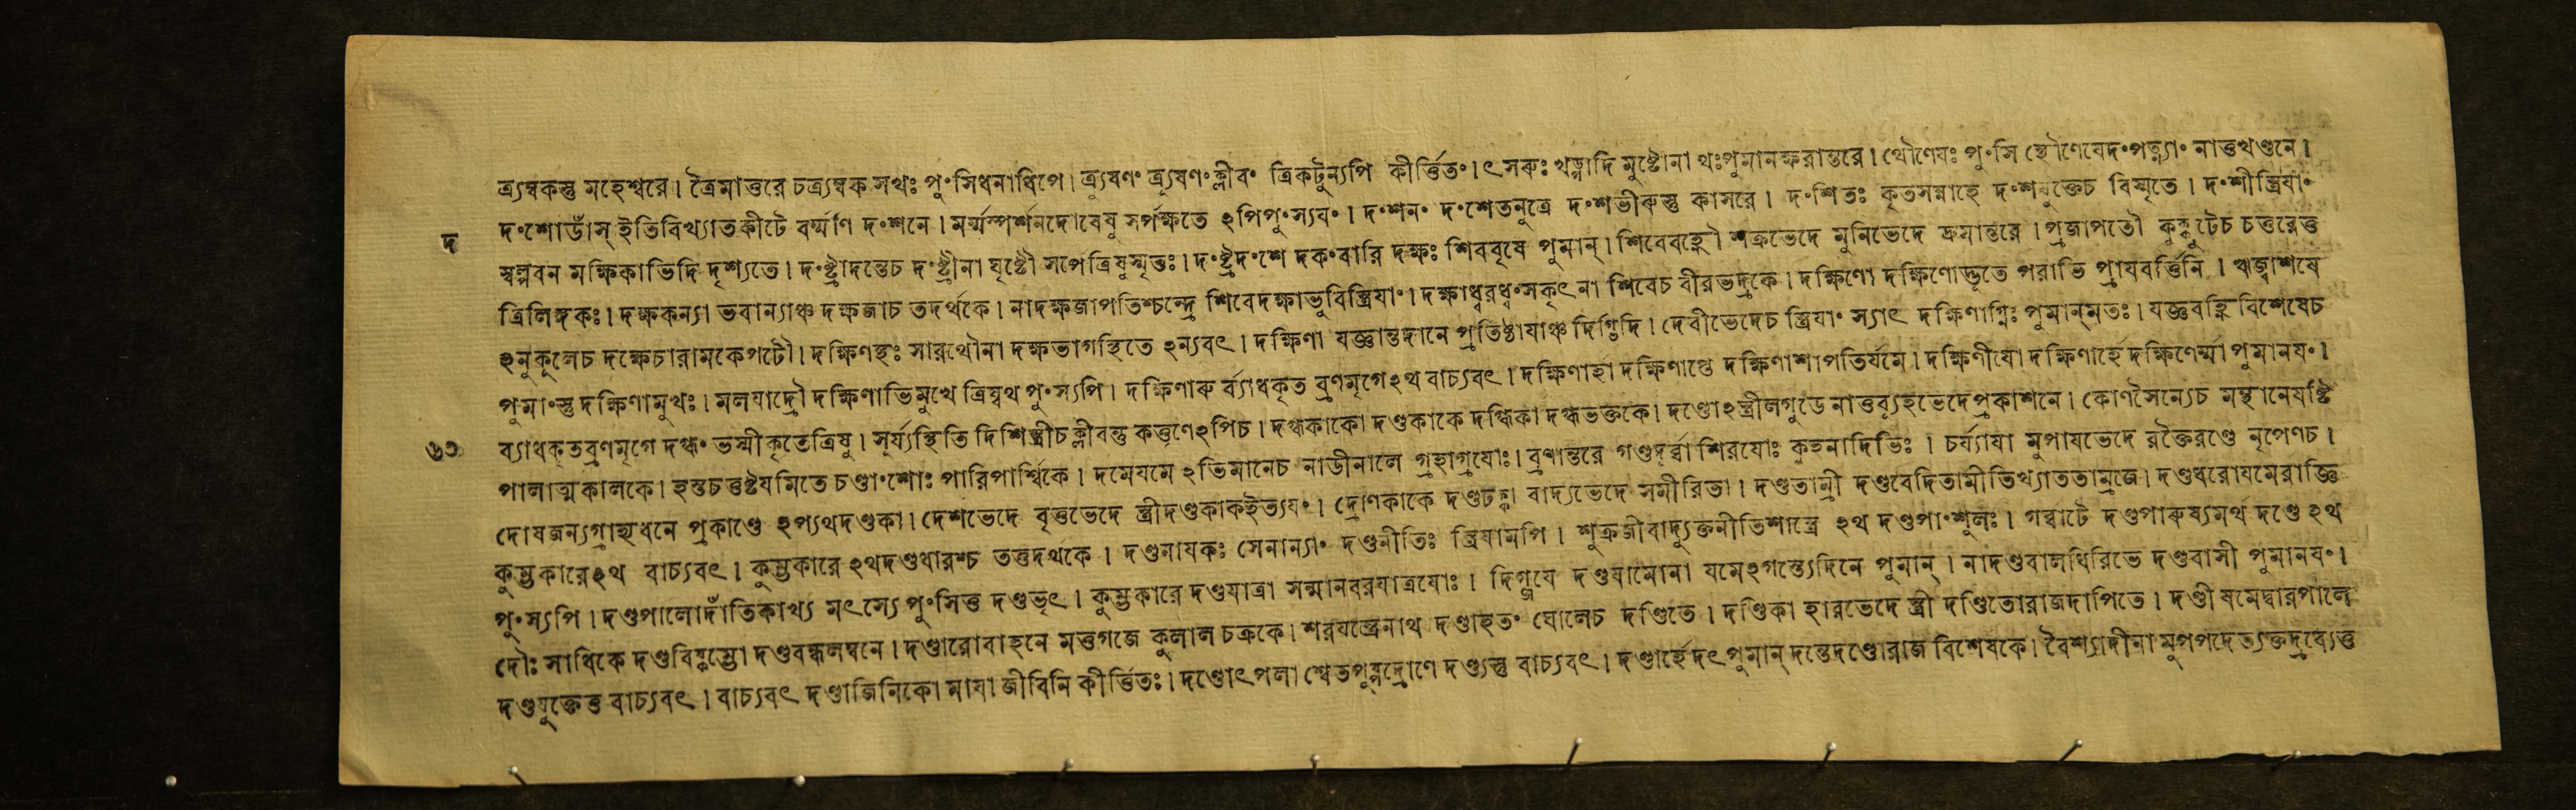 ত্র্যম্বকস্তু মহেশ্বরে। ত্রৈমাত্তরে চত্র্যম্বক সথঃ পুংসিধনাধিপে। ত্র্যুষণং ত্র্যূষণং ক্লীবং ত্রিকটুন্যপি কীর্ত্তিতং। ৎসরুঃ খড়্গাদি মুষ্টোনা থঃপুমানক্ষরান্তরে। থৌণেযঃ পুংসি নাত্তখণ্ডনে।
দ দংশোডাঁস্ ইতিবিখ্যাতকীটে বর্ম্মণি দংশনে। মর্ম্মস্পর্শনদোষেষু সর্পক্ষতে ঽপিপুংস্যযং। দংশনং দংশেতনুত্রে দংশভীরুস্তু কাসরে। দংশিতঃ কৃতসন্নাহে দংশযুক্তেচ বিস্মৃতে। দংশীস্ত্রিযাং
স্বল্পবন মক্ষিকাভিদি দৃশ্যতে। দংষ্ট্রাদন্তেচ দংষ্ট্রীনা ঘৃষ্টৌ সর্পেত্রিষুস্মৃতঃ। দংষ্ট্রদংশে দকংবারি দক্ষঃ শিববৃষে পুমান্। শিবেবহ্নৌ শক্রভেদে মুনিভেদে দ্রুমান্তরে। প্রজাপতৌ কুক্কুটেচ চত্তরেত্ত
ত্রিলিঙ্গকঃ। দক্ষকন্যা ভবান্যাঞ্চ দক্ষজাচ তদর্থকে। নাদক্ষজাপতিশ্চন্দ্রে শিবেদক্ষাভুবিস্ত্রিযাং। দক্ষাধ্বরধ্বংসকৃৎ না শিবেচ বীরভদ্রকে। দক্ষিণো দক্ষিণোদ্ভূতে পরাভি প্রাযবর্ত্তিনি।
ঽনুকূলেচ দক্ষেচারামকেপটৌ। দক্ষিণস্থঃ সারথৌনা দক্ষভাগস্থিতে ঽন্যবৎ। দক্ষিণা যজ্ঞান্তদানে প্রতিষ্ঠাযাঞ্চ দিগ্ভিদি। দেবীভেদেচ স্ত্রিযাং স্যাৎ দক্ষিণাগ্নিঃ পুমান্মতঃ। যজ্ঞবহ্নি বিশেষেচ
পুমাংস্তু দক্ষিণামুখঃ। মলযাদ্রৌ দক্ষিণাভিমুখে ত্রিষ্বথ পুংস্যপি। দক্ষিণারু র্ব্যাধকৃত ব্রণমৃগেঽথ বাচ্যবৎ। দক্ষিণার্হা দক্ষিণাণ্ডে দক্ষিণাশাপতির্যমে। দক্ষিণীযো দক্ষিণার্হে দক্ষিণের্ম্মা পুমানযং।
৬৩ ব্যাধকৃতব্রণমৃগে দগ্ধং ভস্মীকৃতেত্রিষু। সূর্য্যস্থিতি দিশিস্ত্রীচ ক্লীবন্তু কত্তৃণেঽপিচ। দগ্ধকাকো দণ্ডকাকে দগ্ধিকা দগ্ধভক্তকে। দণ্ডোঽস্ত্রীলগুডে নাত্তব্যূহভেদেপ্রকাশনে। কোণসৈন্যেচ মন্থানেযষ্টি
পালাত্মকালকে। হস্তচতুষ্টযমিতে চণ্ডাংশোঃ পারিপার্শ্বিকে। দমেযমে ঽভিমানেচ নাডীনালে গৃহাগৃযোঃ। ব্রণান্তরে গণ্ডদূর্ব্বা শিরযোঃ কুহনাদিভিঃ। চর্য্যাযা মুপাযভেদে নৃপেণচ।
দোষজন্যগ্রাহ্যধনে প্রকাণ্ডে ঽপ্যথদণ্ডকা। দেশভেদে বৃত্তভেদে স্ত্রীদণ্ডকাকইত্যযং। দ্রোণকাকে দণ্ডঢক্কা বাদ্যভেদে সমীরিতা। দণ্ডতাম্রী দণ্ডবেদিতামীতিখ্যাততাম্রজে। দণ্ডধরোযমেরাজ্ঞি
কুম্ভকারেঽথ বাচ্যবৎ। কুম্ভকারে ঽথদণ্ডধারশ্চ তত্তদর্থকে। দণ্ডনাযকঃ সেনান্যাং দণ্ডনীতিঃ স্ত্রিযামপি। শুক্রজীবাদ্যুক্তনীতিশাস্ত্রে ঽথ দণ্ডপাংশুলঃ। গর্ব্বাটে দণ্ডপারুষ্যমর্থ দণ্ডে ঽথ
পুংস্যপি। দণ্ডপালোদাঁতিকাখ্য মৎস্যে পুংসিত্ত দণ্ডভৃৎ। কুম্ভকারে দণ্ডযাত্রা সন্মানবরযাত্রযোঃ। দিগ্জযে দণ্ডযামোনা যমেঽগস্ত্যেদিনে পুমান্। নাদণ্ডবালধিরিভে দণ্ডবাসী পুমানযং।
দৌঃ সাধিকে দণ্ডবিষ্কম্ভো দণ্ডবন্ধলম্বনে। দণ্ডারোবাহনে মত্তগজে কুলাল চক্রকে। শরযন্ত্রেনাথ দণ্ডাহতং ঘোলেচ দণ্ডিতে। দণ্ডিকা হারভেদে স্ত্রী দণ্ডিতোরাজদাপিতে। দণ্ডী যমেদ্বারপালে
দণ্ডযুক্তেত্ত বাচ্যবৎ। বাচ্যবৎ দণ্ডাজিনিকো মাযা জীবিনি কীর্ত্তিতঃ। দণ্ডোৎপলা শ্বেতপুষ্পদ্রোণে দণ্ড্যস্তু বাচ্যবৎ। দণ্ডার্হে দৎ পুমান্ দন্তেদণ্ডোরাজ বিশেষকে। বৈশ্যাদীনা মুপপদে